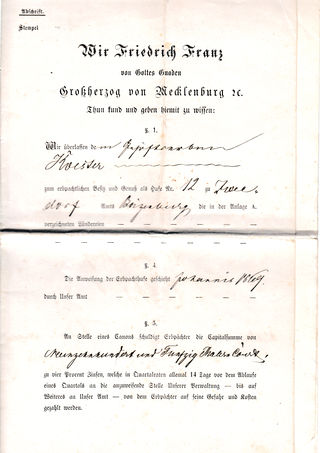 Abschrift.
Stempel
Wir Friedrich Franz
von Gottes Gnaden
Großherzog von Mecklenburg ꝛc.
Thun kund und geben hiemit zu wissen:
§. 1.
Wir überlassen dem
zum erbpachtlichen Besitz und Genuß als Hufe Nr. 12 zu Zwee
dorf Amts Boizenburg, die in der Anlage A.
verzeichneten Ländereien
§. 4.
Die Anweisung der Erbpachthufe geschieht Johannis 1869.
durch Unser Amt
§. 5.
An Stelle eines Canons schuldigt Erbpächter die Capitalsumme von
Neunzehnhundert und Fünfzig Thalern Cour.
zu vier Procent Zinsen, welche in Quartalraten allemal 14 Tage vor dem Ablaufe
eines Quartals an die anzuweisende Stelle Unserer Verwaltung — bis auf
Weiteres an Unser Amt — von dem Erbpächter auf seine Gefahr und Kosten
gezahlt werden.